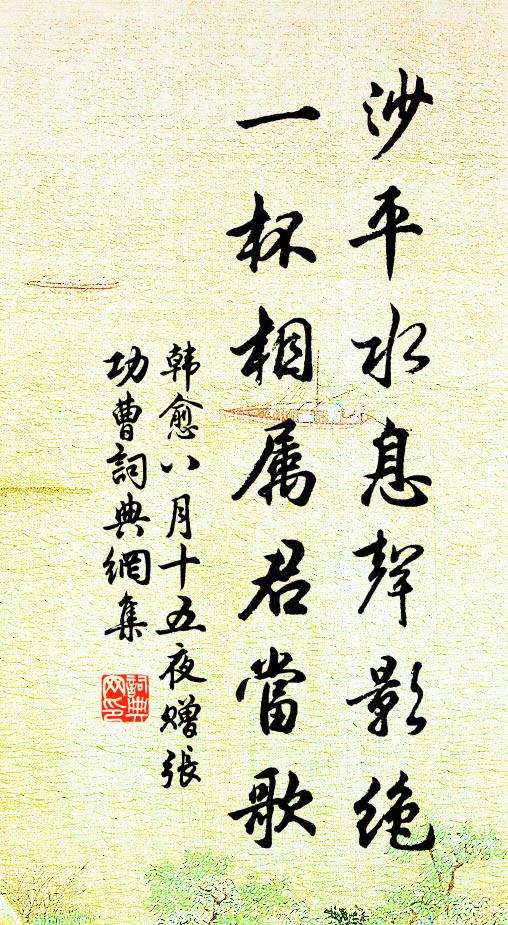 沙平水息聲影绝
一杯相属君當歌
韩愈八月十五夜赠張
功曹詞典網集
詞典
网印